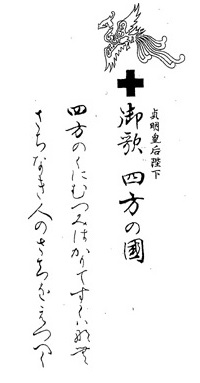 貞明皇后陛下
御歌 四方の國
四方のくにむつみはかりてすくはなむ
さちなき人のさちをえつへく